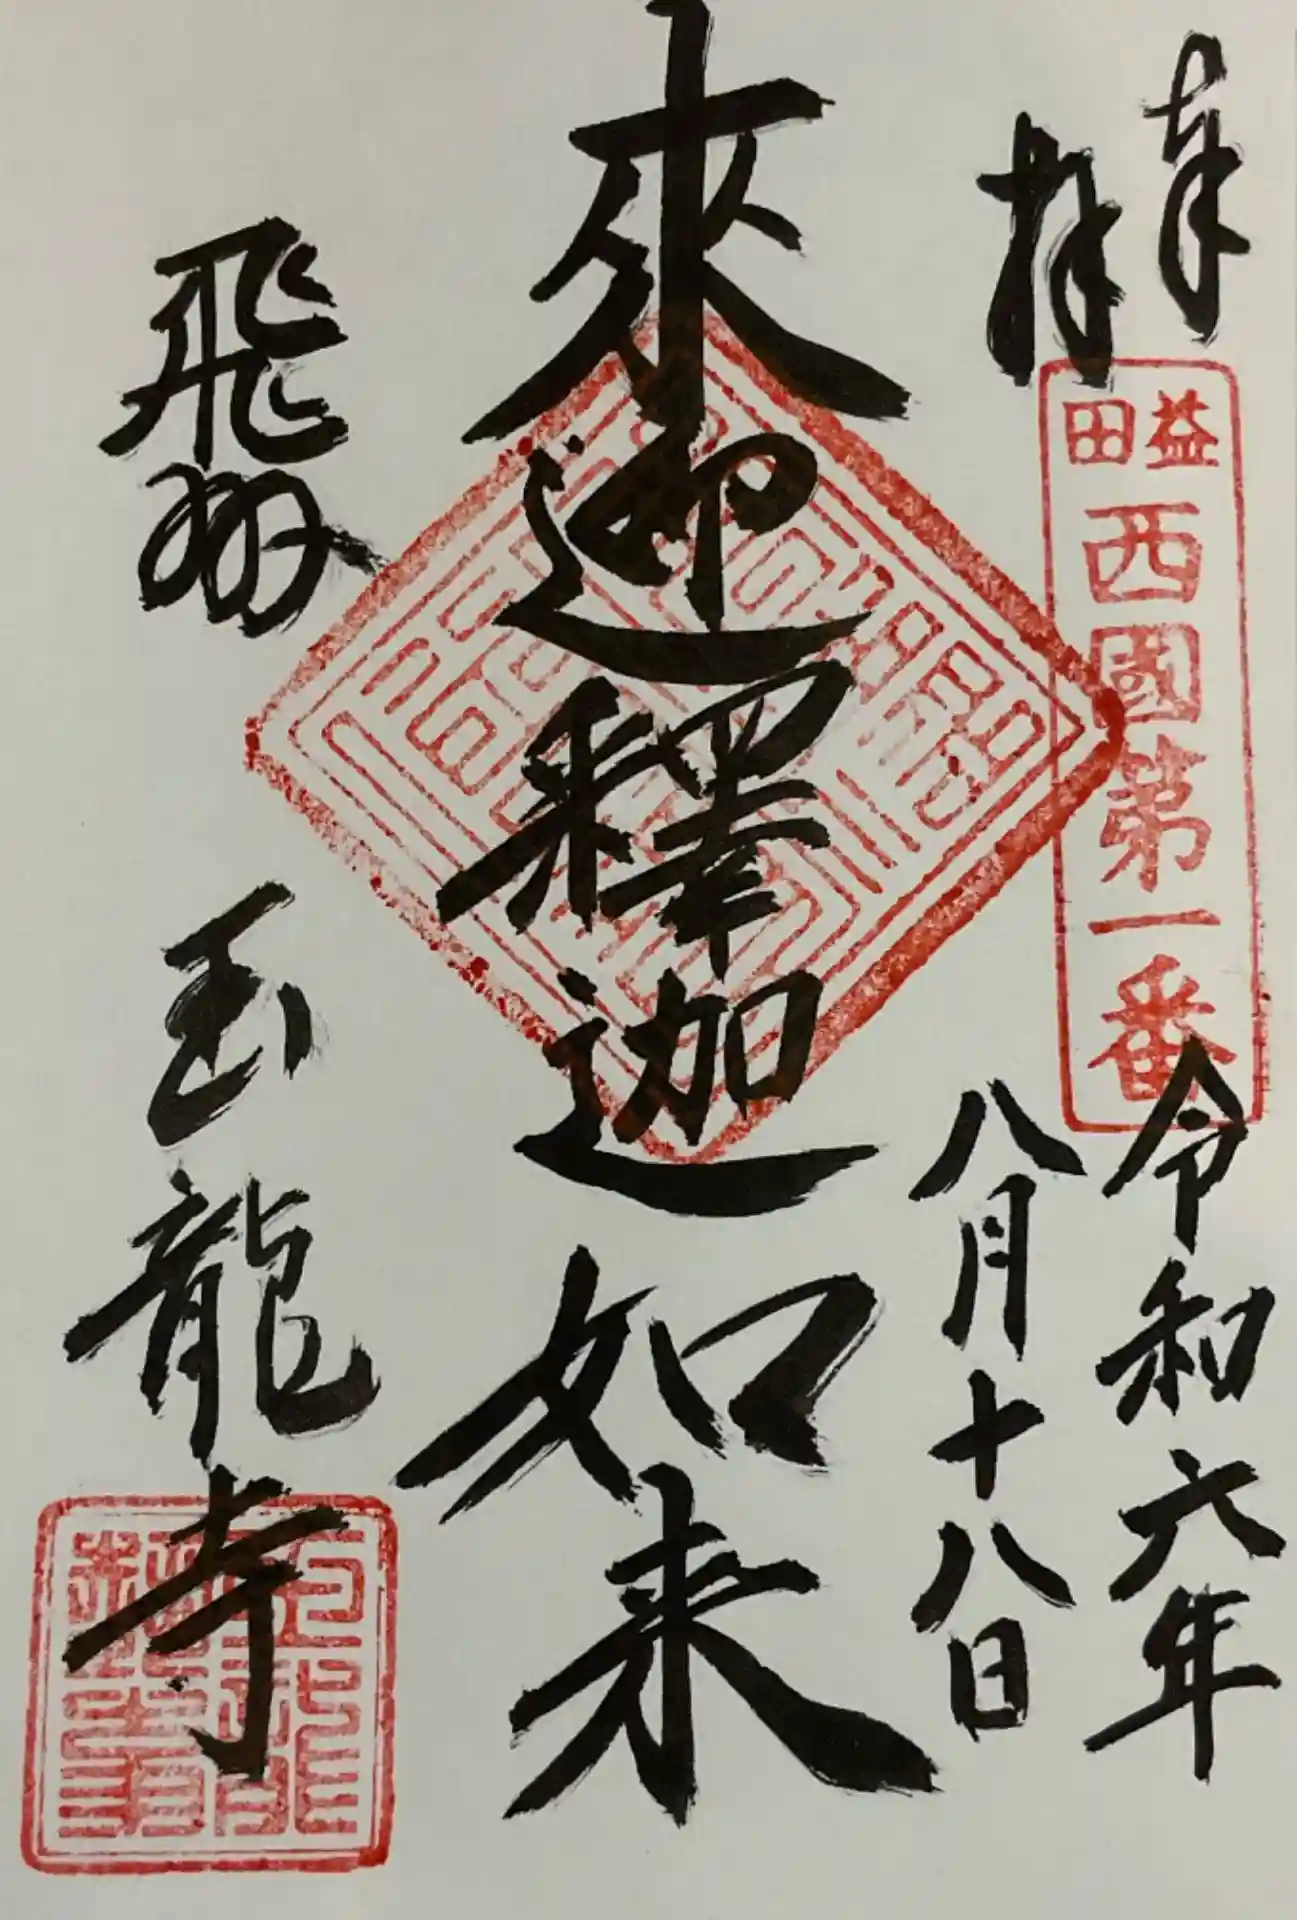 奉
拝
益田
西國第一番
令和六年
八月十八日
來迎釋迦如来
飛州
玉龍寺